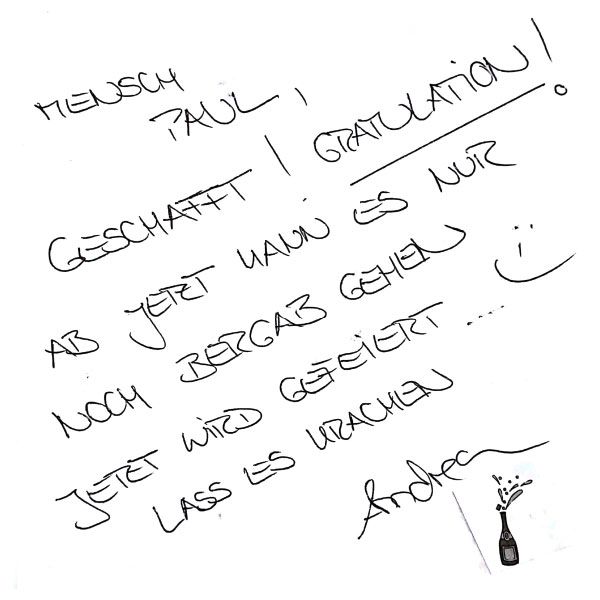 MENSCH
PAUL,
GESCHAFFT! GRATULATION!
AB JETZT KANN ES NUR
NOCH BERGAB GEHEN
JETZT WIRD GEFEIERT....
LASS ES KRACHEN
Andrea